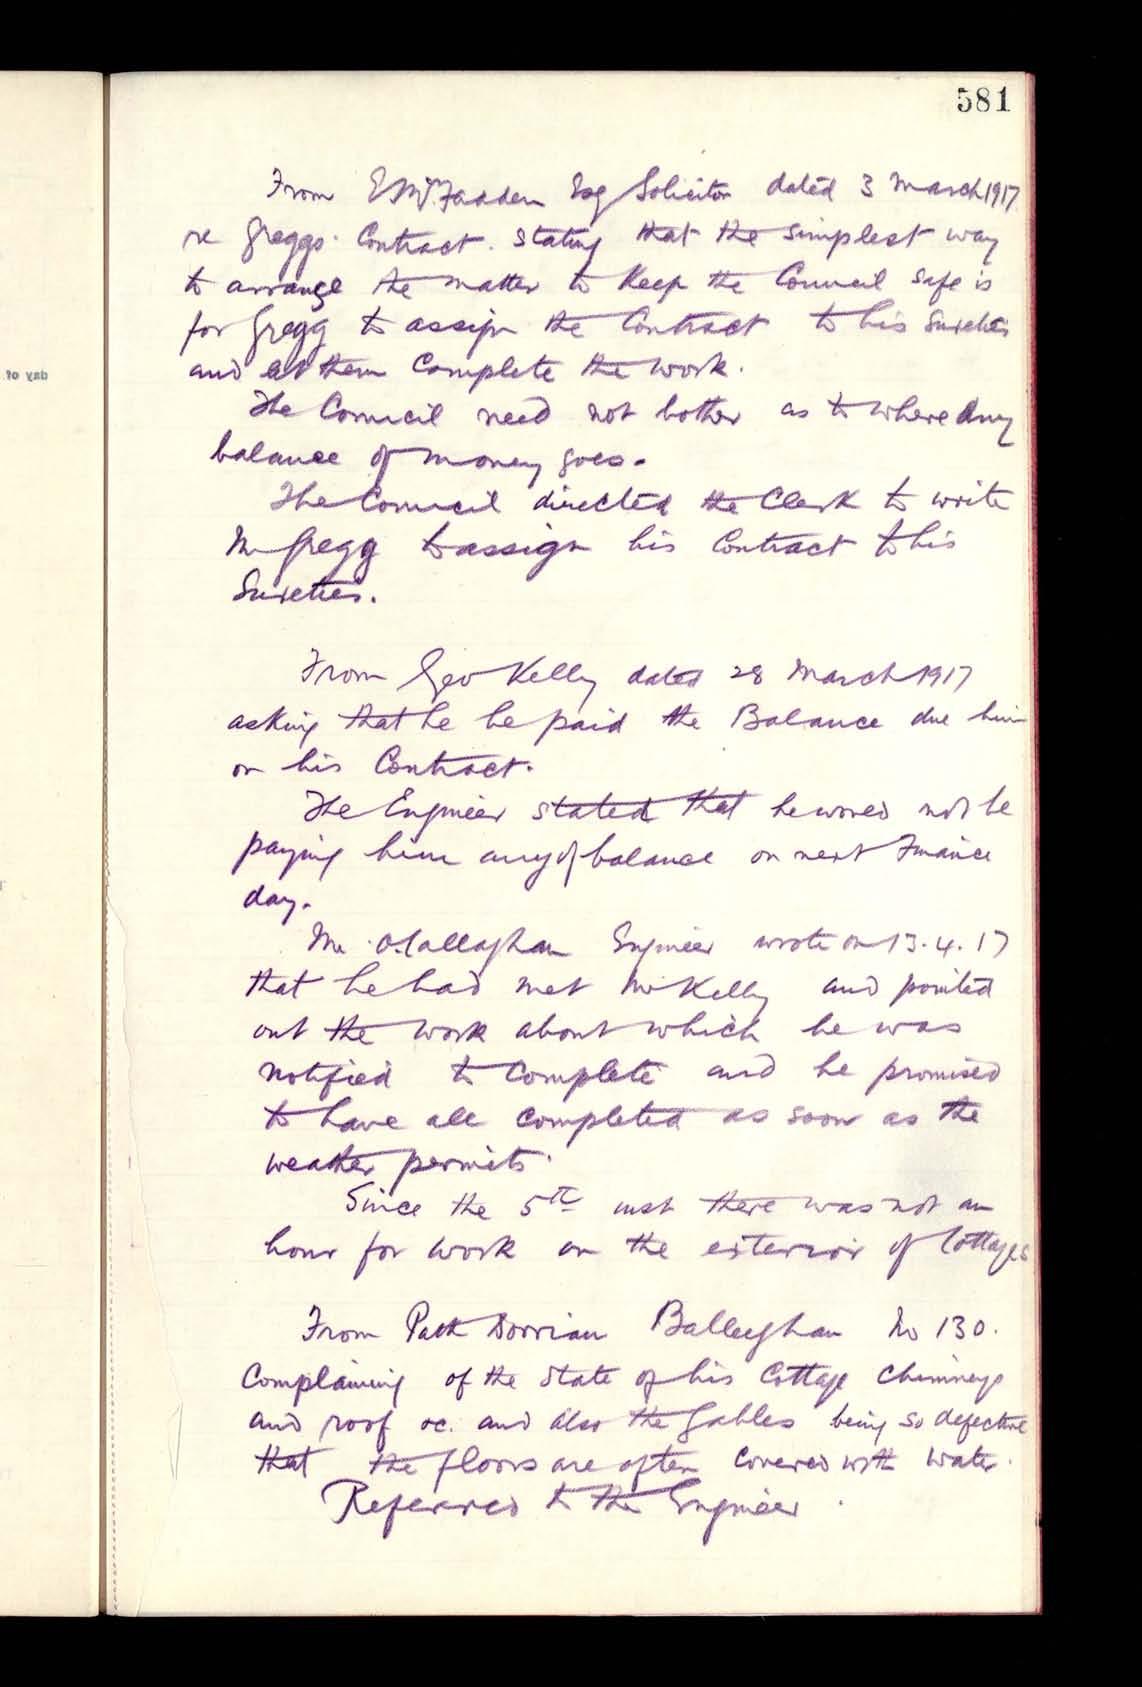 581
From E McFadden Esq Solicitor dated 3 March 1917
re Greggs Contract. stating that the simplest way
to arrange the matter to Keep the Council safe is
for Gregg to assign the Contract to his Sureties
and let them Complete the work.
The Council need not bother as to where any
balance of money goes.
The Council directed the Clerk to write
Mr Gregg to assign his Contract to his
Sureties.
From Geo Kelly dated 28 March 1917
asking that he be paid the Balance due him
on his Contract.
The Engineer stated that he would not be
paying him any of balance on next Finance
day.
Mr O'Callaghan Engineer wrote on 13.4.17
that he had met Mr Kelly and pointed
out the work about which he was
notified to Complete and he promised
to have all completed as soon as the
weather permits.
Since the 5th inst there was not an
hour for work on the exterior of Cottages
From Patk Dorrian Balleeghan No 130.
Complaining of the state of his Cottage chimneys
and roof &c. and also the gables being so defective
that the floors are often covered with water.
Referred to the Engineer
day of